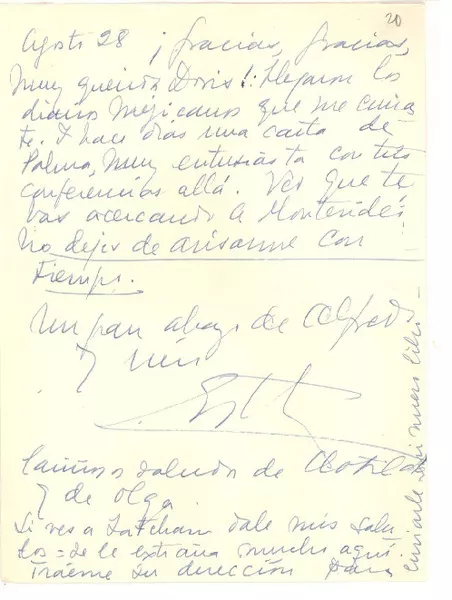 20
Agosto 28 ¡Gracias, gracias,
muy querida Doris! Llegaron los
diarios mejicanos que me envias
te. Y hace días una carta de
Palma, muy entusiasta con tus
conferencias allá. Veo que te
vas acercando a Montevideo
No dejes de avisarme con
tiempo.
Un gran abrazo de Alfredo
y mío
Esther
Cariñoso saludo de Clotilde
y de Olga
Si ves a Latcham dale mis salu-
dos = se le extraña mucho aquí.
Tráeme su dirección para
enviarle mi nuevo libro